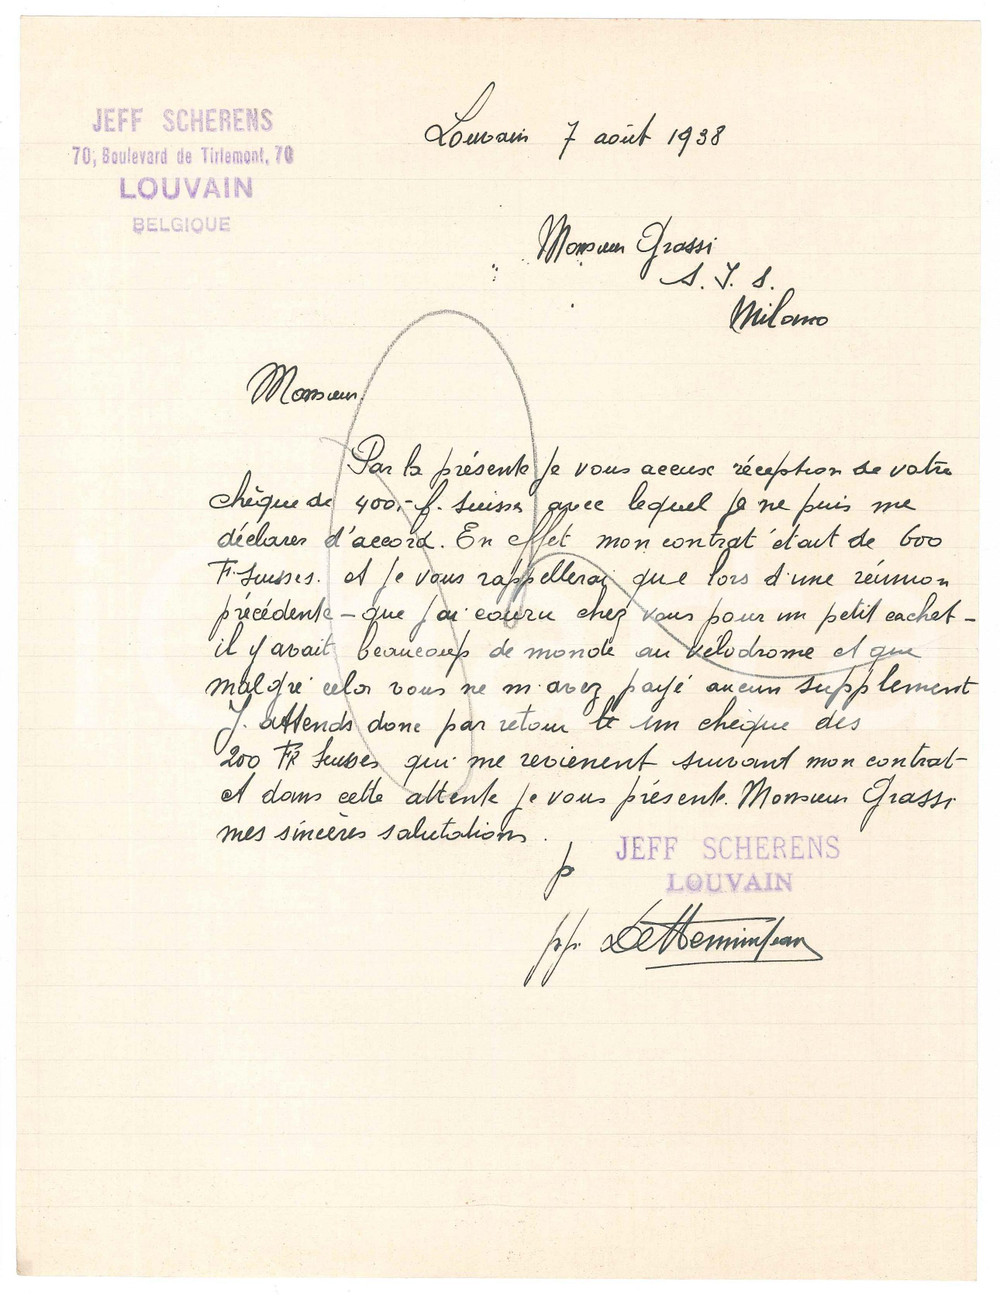 JEFF SCHERENS
70, Boulevard de Tirlemont, 70
LOUVAIN
BELGIQUE
Louvain 7 août 1938
Monsieur Grassi
S. I. S.
Milano
Monsieur.
Par la présente je vous accuse réception de votre
chèque de 400,- f. suisses avec lequel je ne puis me
déclarer d'accord. En effet mon contrat était de 600
Fr. suisses. et je vous rappellerai que lors d'une réunion
précédente - que j'ai couru chez vous pour un petit cachet -
il y avait beaucoup de monde au vélodrome et que
malgré cela vous ne m'avez payé aucun supplement
J'attends donc par retour un chèque des
200 Fr Suisses qui me revienent suivant mon contrat
et dans cette attente je vous présente. Monsieur Grassi
mes sincères salutations.
p JEFF SCHERENS
LOUVAIN
pp.